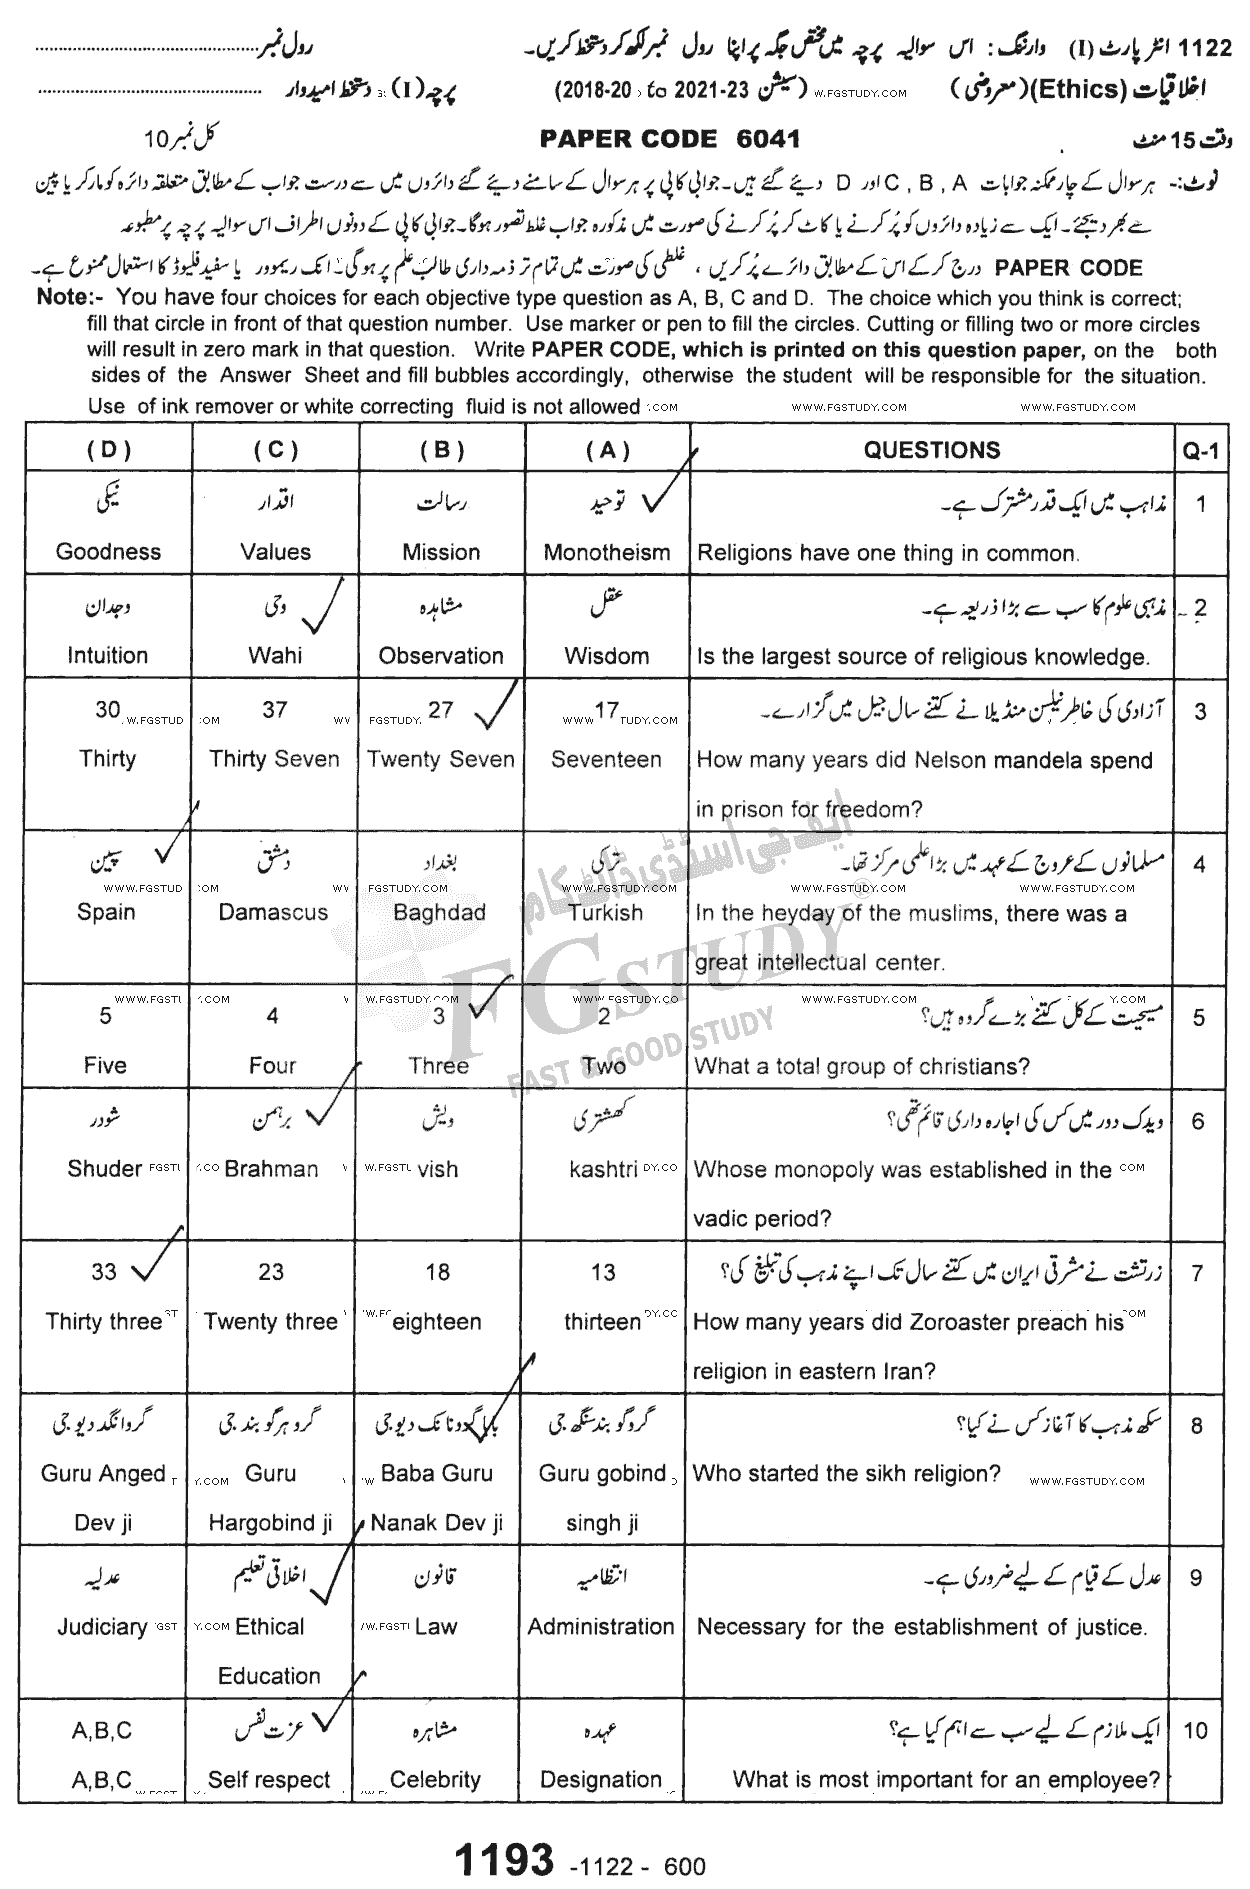 1122 انٹر پارٹ (I) وارننگ: اس سوالیہ پرچہ میں مختص جگہ پر اپنا رول نمبر لکھ کر دستخط کریں۔ رول نمبر
اخلاقیات (Ethics) (معروضی) (سیشن 2018-20 to 2021-23) پرچہ (I): دستخط امیدوار
وقت 15 منٹ PAPER CODE 6041 کل نمبر 10
نوٹ:- ہر سوال کے چار ممکنہ جوابات A , B , C اور D دیئے گئے ہیں۔ جوابی کاپی پر ہر سوال کے سامنے دیئے گئے دائروں میں سے درست جواب کے مطابق متعلقہ دائرہ کو مارکر یا پین
سے بھر دیجئے۔ ایک سے زیادہ دائروں کو پُر کرنے یا کاٹ کر پُر کرنے کی صورت میں مذکورہ جواب غلط تصور ہوگا۔ جوابی کاپی کے دونوں اطراف اس سوالیہ پرچہ پر مطبوعہ
PAPER CODE درج کر کے اس کے مطابق دائرے پُر کریں ، غلطی کی صورت میں تمام تر ذمہ داری طالب علم پر ہوگی۔ انک ریموور یا سفید فلیوڈ کا استعمال ممنوع ہے۔
Note:- You have four choices for each objective type question as A, B, C and D. The choice which you think is correct;
fill that circle in front of that question number. Use marker or pen to fill the circles. Cutting or filling two or more circles
will result in zero mark in that question. Write PAPER CODE, which is printed on this question paper, on the both
sides of the Answer Sheet and fill bubbles accordingly, otherwise the student will be responsible for the situation.
Use of ink remover or white correcting fluid is not allowed .COM WWW.FGSTUDY.COM WWW.FGSTUDY.COM
( D ) ( C ) ( B ) ( A ) QUESTIONS Q-1
نیکی اقدار رسالت توحید مذاہب میں ایک قدر مشترک ہے۔ 1
Goodness Values Mission Monotheism Religions have one thing in common.
وجدان وحی مشاہدہ عقل مذہبی علوم کا سب سے بڑا ذریعہ ہے۔ 2
Intuition Wahi Observation Wisdom Is the largest source of religious knowledge.
30 37 27 17 آزادی کی خاطر نیلسن منڈیلا نے کتنے سال جیل میں گزارے۔ 3
Thirty Thirty Seven Twenty Seven Seventeen How many years did Nelson mandela spend
in prison for freedom?
سپین دمشق بغداد ترکی مسلمانوں کے عروج کے عہد میں بڑا علمی مرکز تھا۔ 4
WWW.FGSTUDY.COM FGSTUDY.COM WWW.FGSTUDY.COM WWW.FGSTUDY.COM WWW.FGSTUDY.COM
Spain Damascus Baghdad Turkish In the heyday of the muslims, there was a
great intellectual center.
ایف جی اسٹڈی ڈاٹ کام
FGSTUDY
FAST & GOOD STUDY
5 4 3 2 مسیحیت کے کل کتنے بڑے گروہ ہیں؟ 5
Five Four Three Two What a total group of christians?
شودر برہمن ویش کھشتری ویدک دور میں کس کی اجارہ داری قائم تھی؟ 6
Shuder Brahman vish kashtri Whose monopoly was established in the
vadic period?
33 23 18 13 زرتشت نے مشرقی ایران میں کتنے سال تک اپنے مذہب کی تبلیغ کی؟ 7
Thirty three Twenty three eighteen thirteen How many years did Zoroaster preach his
religion in eastern Iran?
گرو انگد دیو جی گرو ہرگوبند جی بابا گرو نانک دیو جی گرو گوبند سنگھ جی سکھ مذہب کا آغاز کس نے کیا؟ 8
Guru Anged Guru Baba Guru Guru gobind Who started the sikh religion? WWW.FGSTUDY.COM
Dev ji Hargobind ji Nanak Dev ji singh ji
عدلیہ اخلاقی تعلیم قانون انتظامیہ عدل کے قیام کے لیے ضروری ہے۔ 9
Judiciary Ethical Law Administration Necessary for the establishment of justice.
Education
A,B,C عزت نفس مشاہرہ عہدہ ایک ملازم کے لیے سب سے اہم کیا ہے؟ 10
A,B,C Self respect Celebrity Designation What is most important for an employee?
1193 -1122 - 600